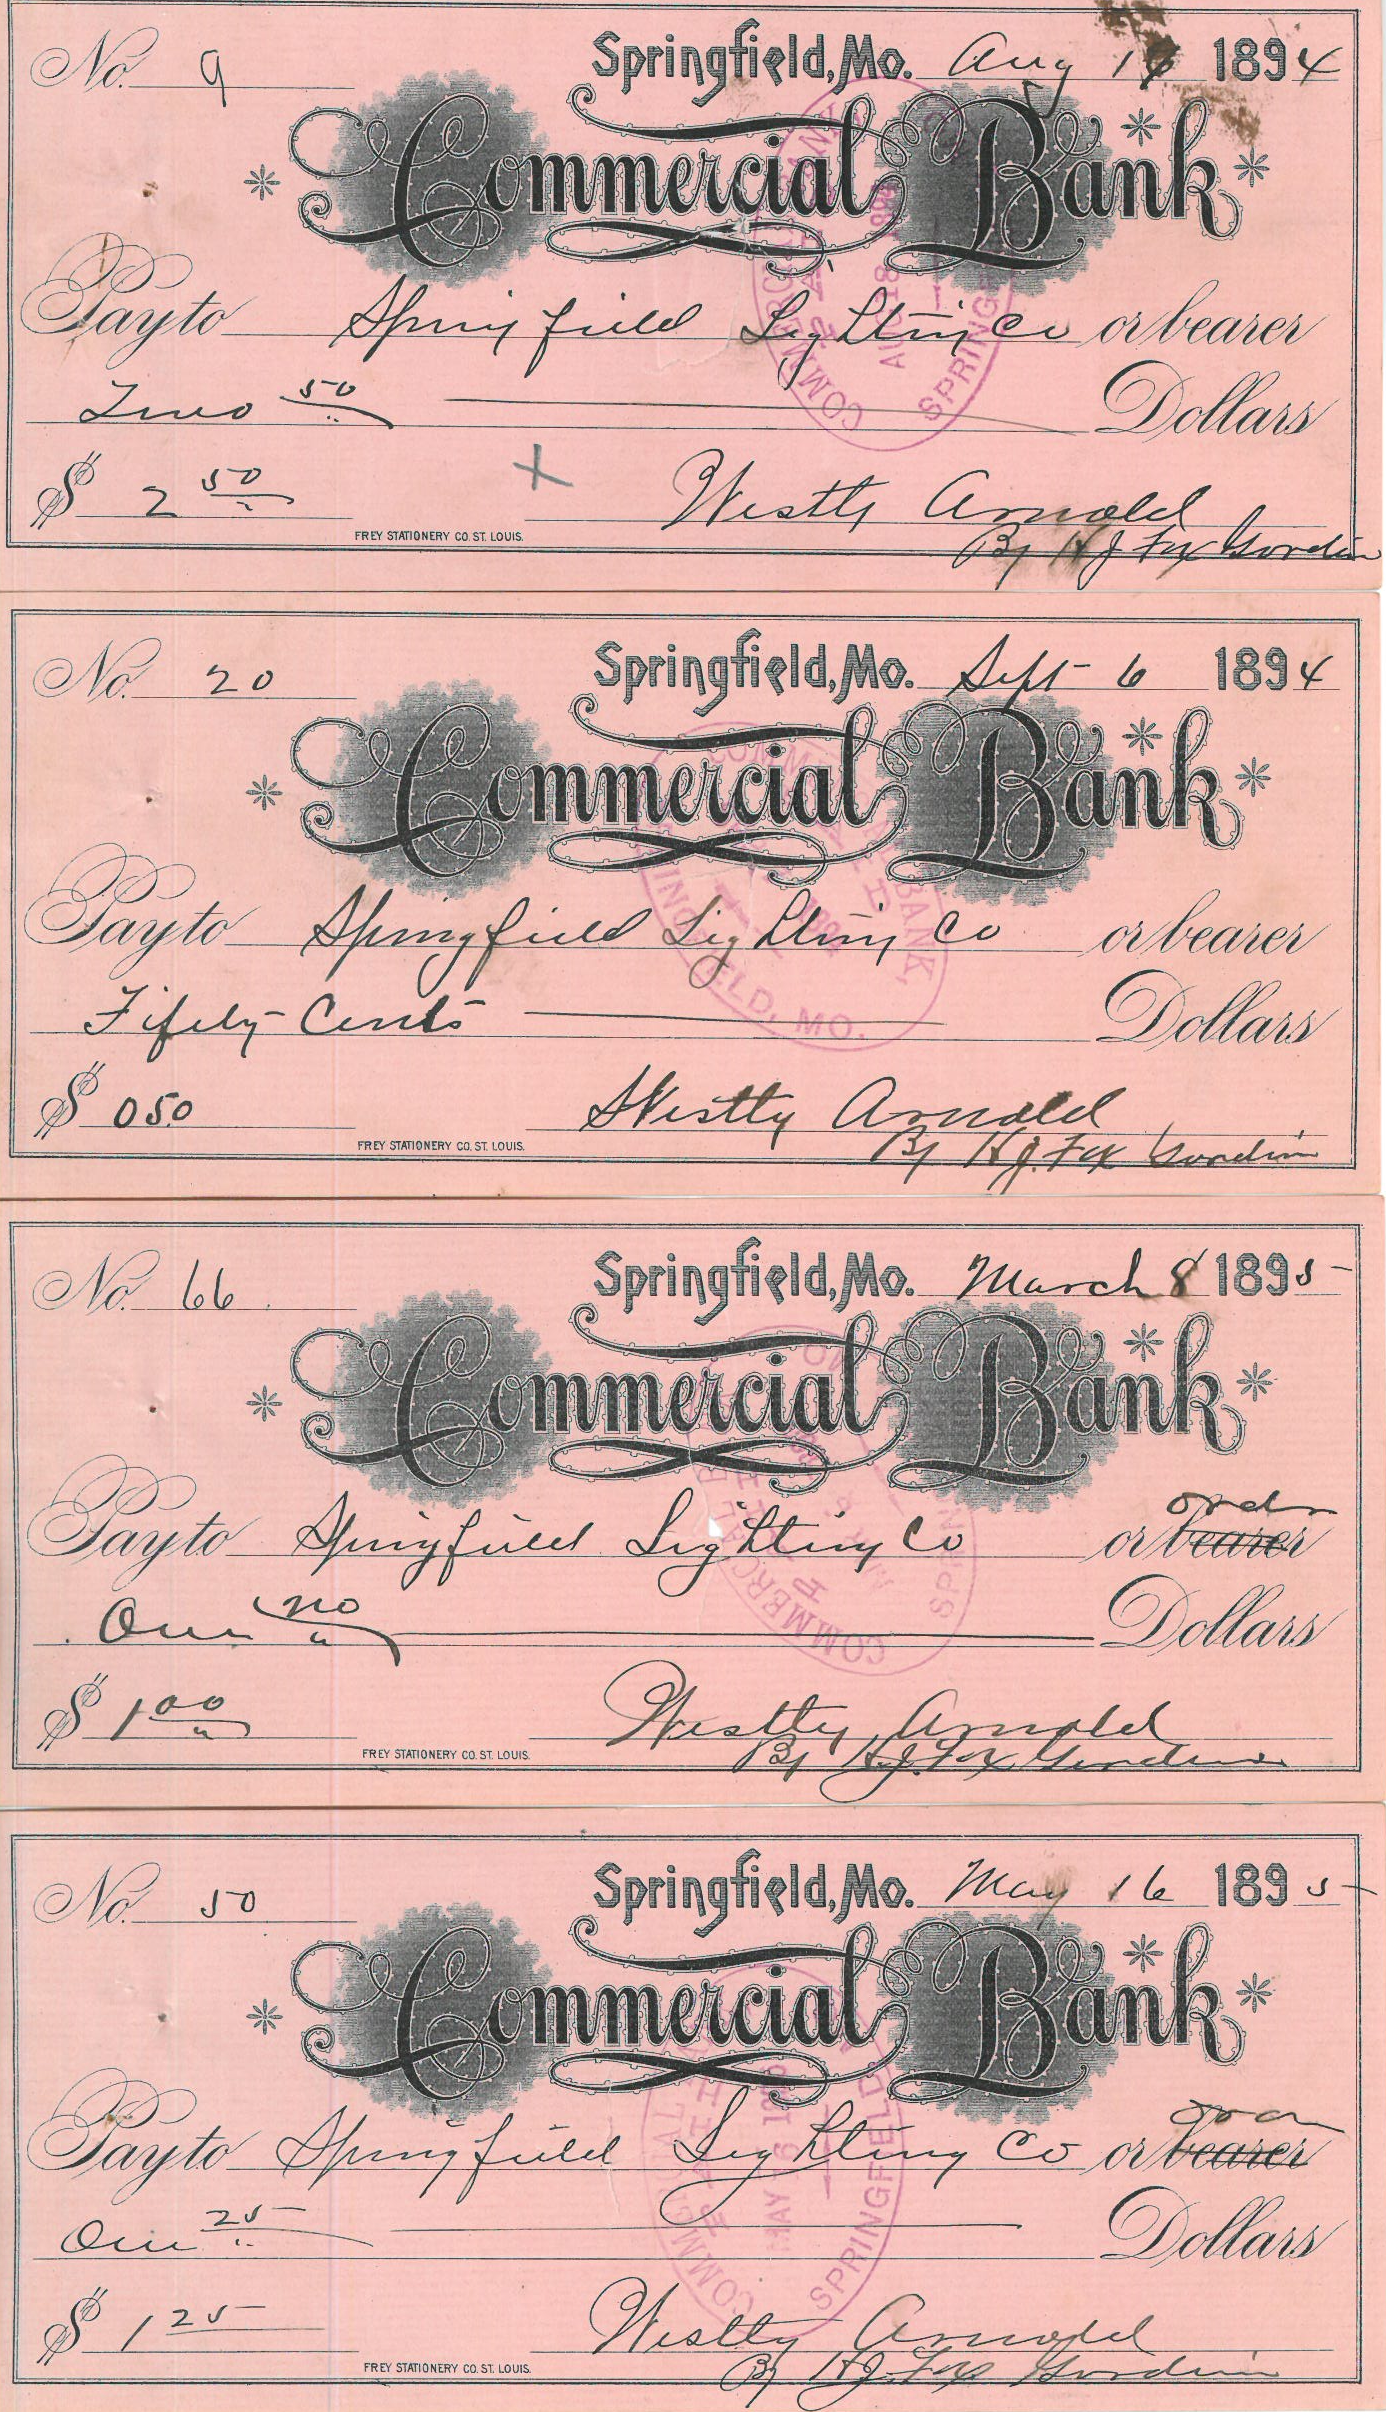 No. 9 Springfield, Mo. Aug 1894
Commercial Bank
Pay to Springfield Lighting Co or bearer
Two 50 Dollars
$ 2 50
Westly Arnold
By H J Fox
FREY STATIONERY CO. ST. LOUIS.
COMMERCIAL BANK
AUG 18
SPRING
No. 20 Springfield, Mo. Sept 6 1894
Commercial Bank
Pay to Springfield Lighting Co or bearer
Fifety Cents Dollars
$ 0 50
Westly Arnold
By H J. Fox
FREY STATIONERY CO. ST. LOUIS.
BANK,
INGFIELD, MO.
No. 66 Springfield, Mo. March 8 1895
Commercial Bank
ordr
Pay to Springfield Lighting Co or bearer
One no Dollars
$ 1 00
Westly Arnold
By H.J. Fox
FREY STATIONERY CO. ST. LOUIS.
COMMERCIAL B
No. 50 Springfield, Mo. May 16 1895
Commercial Bank
Pay to Springfield Lighting Co or bearer
One 25 Dollars
$ 1 25
Westly Arnold
By H J. Fox
FREY STATIONERY CO. ST. LOUIS.
MAY 16
SPRINGFIELD